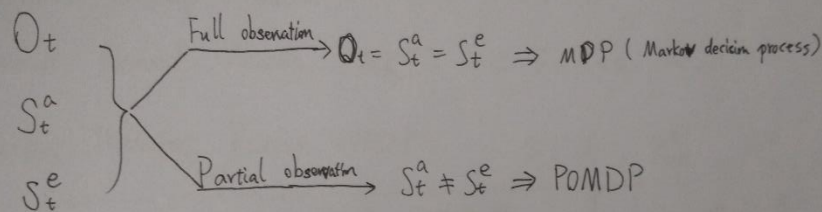 O_t
Full observation
O_t = S_t^a = S_t^e ⇒ MDP ( Markov decision process)
S_t^a
S_t^e
Partial observation
S_t^a ≠ S_t^e ⇒ POMDP